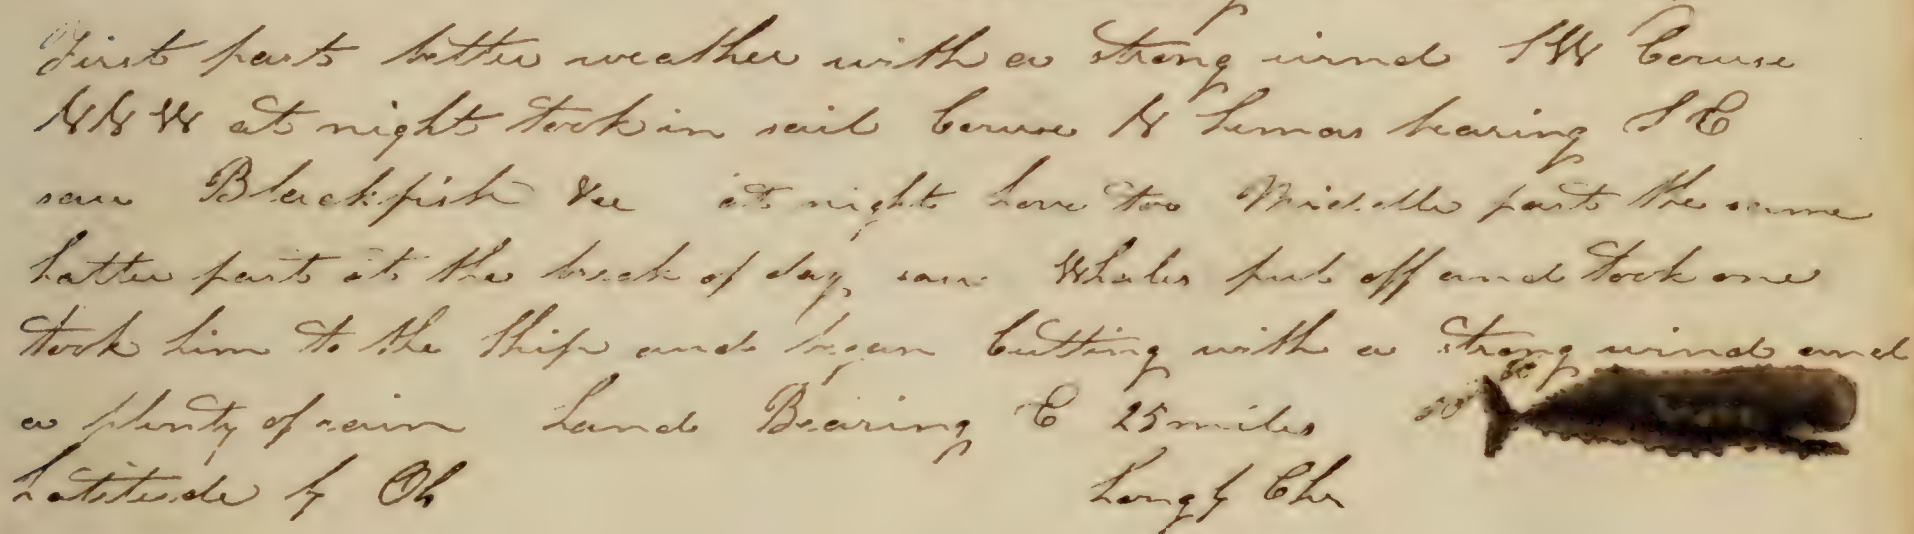 First part better weather with a strong wind SW Couse
NNW at night took in sail Couse N Lemas bearing S E
saw Blackfish &cc at night hove too Middle part the same
Latter part at the break of day saw Whales put off and took one
took him to the Ship and began Cutting with a strong wind and
a plenty of rain Land Bearing E 25 miles
Latitude by Ob Longt by Chr